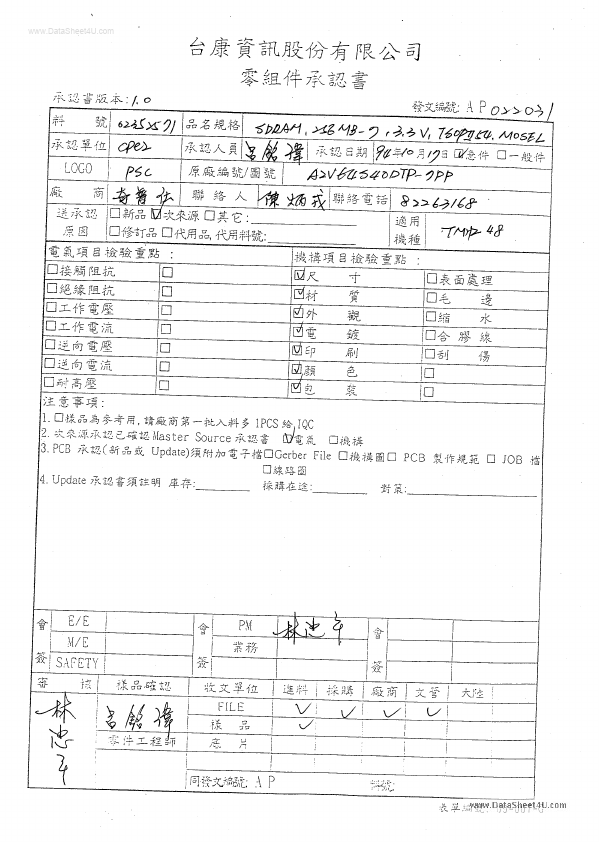 www.DataSheet4U.com
台康資訊股份有限公司
零組件承認書
承認書版本:1.0
發文編號: A P 022031
料 號 62352571 品名規格 SDRAM, 256MB-7, 3.3V, TSOPII54, MOSEL
承認單位 CPE2 承認人員 呂銘瑋 承認日期 94年10月17日 ☑急件 □一般件
LOGO PSC 原廠編號/圖號 A2V64S40DTP-7PP
廠 商 聯絡人 陳炳戎 聯絡電話 82263168
送承認 □新品 ☑次來源 □其它: 適用
原因 □修訂品 □代用品,代用料號: 機種
電氣項目檢驗重點: 機構項目檢驗重點:
□接觸阻抗 □ ☑尺 寸 □表面處理
□絕緣阻抗 □ ☑材 質 □毛 邊
□工作電壓 □ ☑外 觀 □縮 水
□工作電流 □ ☑電 鍍 □合膠線
□逆向電壓 □ ☑印 刷 □刮 傷
□逆向電流 □ ☑顏 色 □
□耐高壓 □ ☑包 裝 □
注意事項:
1. □樣品為參考用,請廠商第一批入料多 1PCS 給 IQC
2. 次來源承認已確認Master Source 承認書 ☑電氣 □機構
3. PCB 承認(新品或 Update)須附加電子檔□Gerber File □機構圖□ PCB 製作規範 □ JOB 檔
□線路圖
4. Update 承認書須註明 庫存: 採購在途: 對策:
會簽 E/E 會簽 PM 林忠平 會簽
M/E 業務
SAFETY
審 核 樣品確認 收文單位 進料 採購 廠商 文管 大陸
林忠平 呂銘瑋 FILE ✓ ✓ ✓ ✓
樣 品 ✓
零件工程師 底 片
同發文編號: A P 料號:
表單編號:
www.DataSheet4U.com